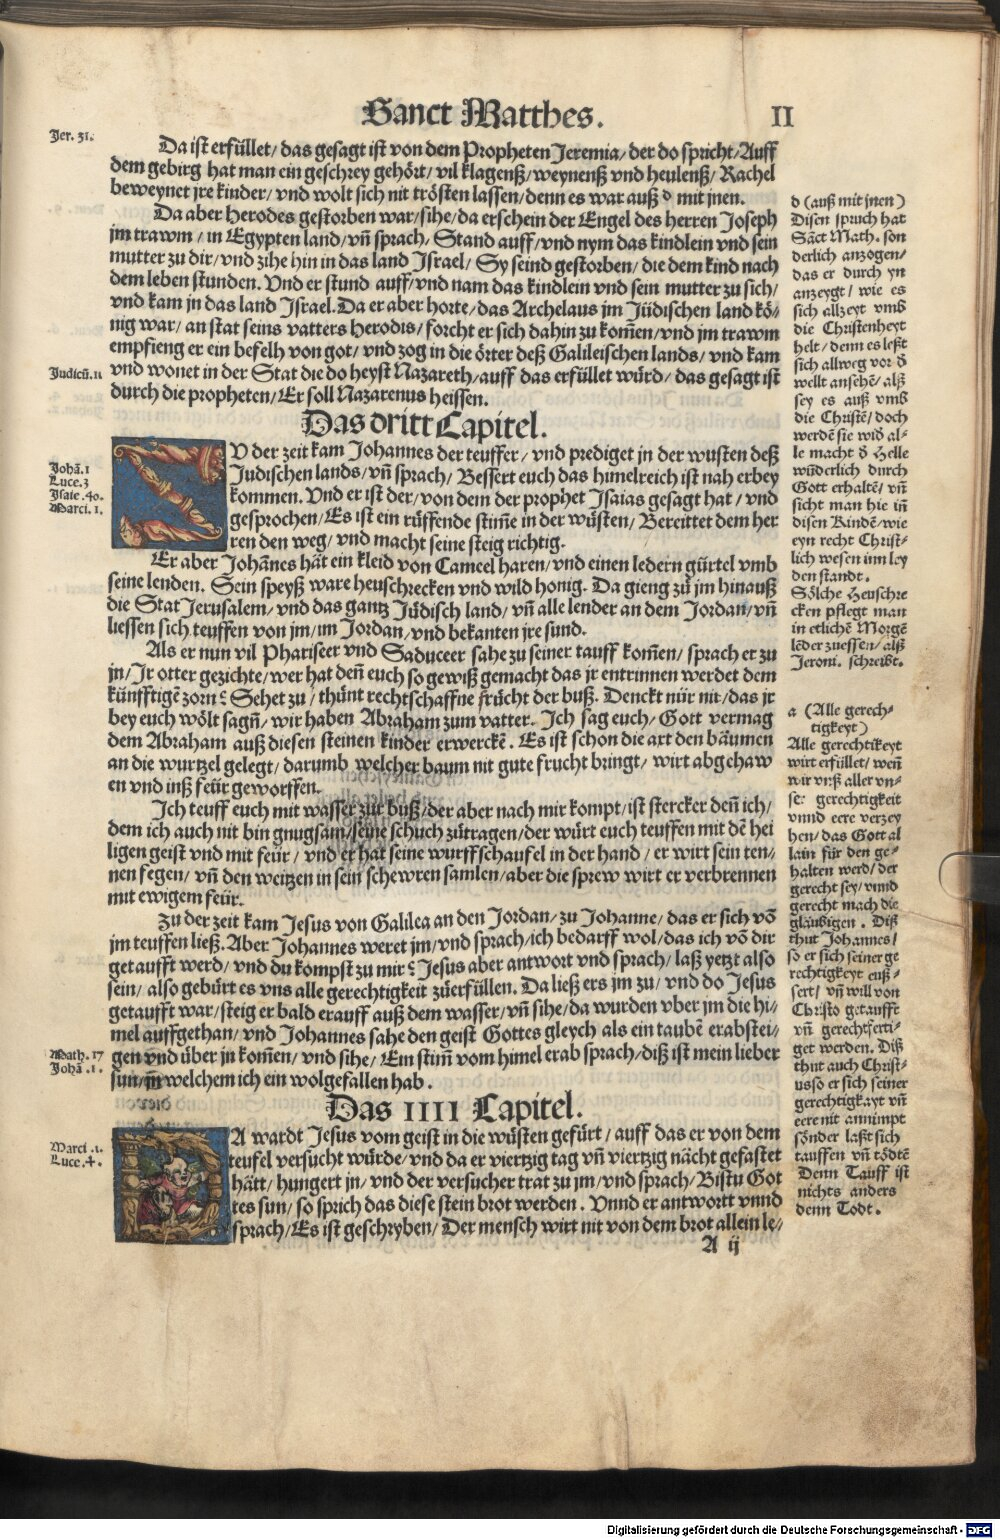 Sanct Matthes.
II
Jer. 31.
Da ist erfüllet/ das gesagt ist von dem Propheten Jeremia/ der do spricht/ Auff
dem gebirg hat man ein geschrey gehört/ vil klagenß/ weynenß vnd heulenß/ Rachel
beweynet jre kinder/ vnd wolt sich nit trösten lassen/ denn es war auß d mit jnen.
Da aber Herodes gestorben war/ sihe/ da erschein der Engel des herren Joseph
jm trawm/ in Egypten land/ vn̄ sprach/ Stand auff/ vnd nym das kindlein vnd sein
mutter zu dir/ vnd zihe hin in das land Jsrael/ Sy seind gestorben/ die dem kind nach
dem leben stunden. Vnd er stund auff/ vnd nam das kindlein vnd sein mutter zu sich/
vnd kam jn das land Jsrael. Da er aber horte/ das Archelaus jm Jüdischen land kö-
nig war/ an stat seins vatters Herodis/ forcht er sich dahin zu kom̄en/ vnd jm trawm
empfieng er ein befelh von got/ vnd zog in die örter deß Galileischen lands/ vnd kam
Judicū. 11
vnd wonet in der Stat die do heyst Nazareth/ auff das erfüllet würd/ das gesagt ist
durch die propheten/ Er soll Nazarenus heissen.
Das dritt Capitel.
Johā. 1
Luce. 3
Jsaie. 40.
Marci. 1.
ZV der zeit kam Johannes der teuffer/ vnd prediget jn der wusten deß
Judischen lands/ vn̄ sprach/ Bessert euch das himelreich ist nah erbey
kommen. Vnd er ist der/ von dem der prophet Jsaias gesagt hat/ vnd
gesprochen/ Es ist ein rüffende stim̄e in der wüsten/ Bereittet dem her
ren den weg/ vnd macht seine steig richtig.
Er aber Johānes hät ein kleid von Camcel haren/ vnd einen ledern gürtel vmb
seine lenden. Sein speyß ware heuschrecken vnd wild honig. Da gieng zů jm hinauß
die Stat Jerusalem/ vnd das gantz Jüdisch land/ vn̄ alle lender an dem Jordan/ vn̄
liessen sich teuffen von jm/ im Jordan/ vnd bekanten jre sund.
Als er nun vil Phariseer vnd Saduceer sahe zu seiner tauff kom̄en/ sprach er zu
jn/ Jr otter gezichte/ wer hat den̄ euch so gewiß gemacht das jr entrinnen werdet dem
künfftigē zorn? Sehet zu/ thünt rechtschaffne frücht der buß. Denckt nür nit/ das jr
bey euch wölt sagn̄/ wir haben Abraham zum vatter. Jch sag euch/ Gott vermag
dem Abraham auß diesen steinen kinder erwerckē. Es ist schon die axt den bäumen
an die wurtzel gelegt/ darumb welcher baum nit gute frucht bringt/ wirt abgehaw
en vnd inß feür geworffen.
Jch teuff euch mit wasser zür büß/ der aber nach mir kompt/ ist stercker den̄ ich/
dem ich auch nit bin gnugsam/ seine schuch zütragen/ der würt euch teuffen mit dē hei
ligen geist vnd mit feür/ vnd er hat seine wurffschaufel in der hand/ er wirt sein ten-
nen fegen/ vn̄ den weitzen in sein schewren samlen/ aber die sprew wirt er verbrennen
mit ewigem feür.
Zu der zeit kam Jesus von Galilea an den Jordan/ zu Johanne/ das er sich vō
jm teuffen ließ. Aber Johannes weret jm/ vnd sprach/ ich bedarff wol/ das ich vō dir
getaufft werd/ vnd du kompst zu mir? Jesus aber antwort vnd sprach/ laß yetzt also
sein/ also gebürt es vns alle gerechtigkeit züerfüllen. Da ließ ers jm zu/ vnd do Jesus
getaufft war/ steig er bald erauff auß dem wasser/ vn̄ sihe/ da wurden vber jm die hi-
mel auffgethan/ vnd Johannes sahe den geist Gottes gleych als ein taubē erabstei-
Math. 17
Johā. 1.
gen vnd über jn kom̄en/ vnd sihe/ Ein stim̄ vom himel erab sprach/ diß ist mein lieber
sun/ jn welchem ich ein wolgefallen hab.
Das IIII Capitel.
Marci. 1.
Luce. 4.
DA wardt Jesus vom geist in die wüsten gefürt/ auff das er von dem
teufel versucht würde/ vnd da er viertzig tag vn̄ viertzig nächt gefastet
hätt/ hungert jn/ vnd der versucher trat zu jm/ vnd sprach/ Bistu Got
tes sun/ so sprich das diese stein brot werden. Vnnd er antwortt vnnd
sprach/ Es ist geschryben/ Der mensch wirt nit von dem brot allein le-
A ij
d (auß mit jnen)
Disen spruch hat
Sāct Math. son
derlich anzogen/
das er durch yn
anzeygt/ wie es
sich allzeyt vmb
die Christenheyt
helt/ denn es leßt
sich allweg vor d̄
wellt ansehē/ alß
sey es auß vmb
die Christē/ doch
werdē sie wid̄ al-
le macht d̄ Helle
wūderlich durch
Gott erhaltē/ vn̄
sicht man hie in̄
disen Kindē/ wie
eyn recht Christ-
lich wesen im ley
den standt.
Sölche Heuschre
cken pflegt man
in etlichē Morgē
lēder zuessen/ alß
Jeroni. schreibt.
a (Alle gerech-
tigkeyt)
Alle gerechtikeyt
wirt erfüllet/ wen̄
wir vnß aller vn-
ser gerechtigkeit
vnnd eere verzey
hen/ das Gott al
lain für den ge-
halten werd/ der
gerecht sey/ vnnd
gerecht mach die
gläubigen. Diß
thut Johannes/
so er sich seiner ge
rechtigkeyt euß-
sert/ vn̄ will von
Christo getaufft
vn̄ gerechtferti-
get werden. Diß
thut auch Christ-
us so er sich seiner
gerechtigkayt vn̄
eere nit annimpt
sonder laßt sich
tauffen vn̄ tödtē
Denn Tauff ist
nichts anders
denn Todt.
Digitalisierung gefördert durch die Deutsche Forschungsgemeinschaft - DFG